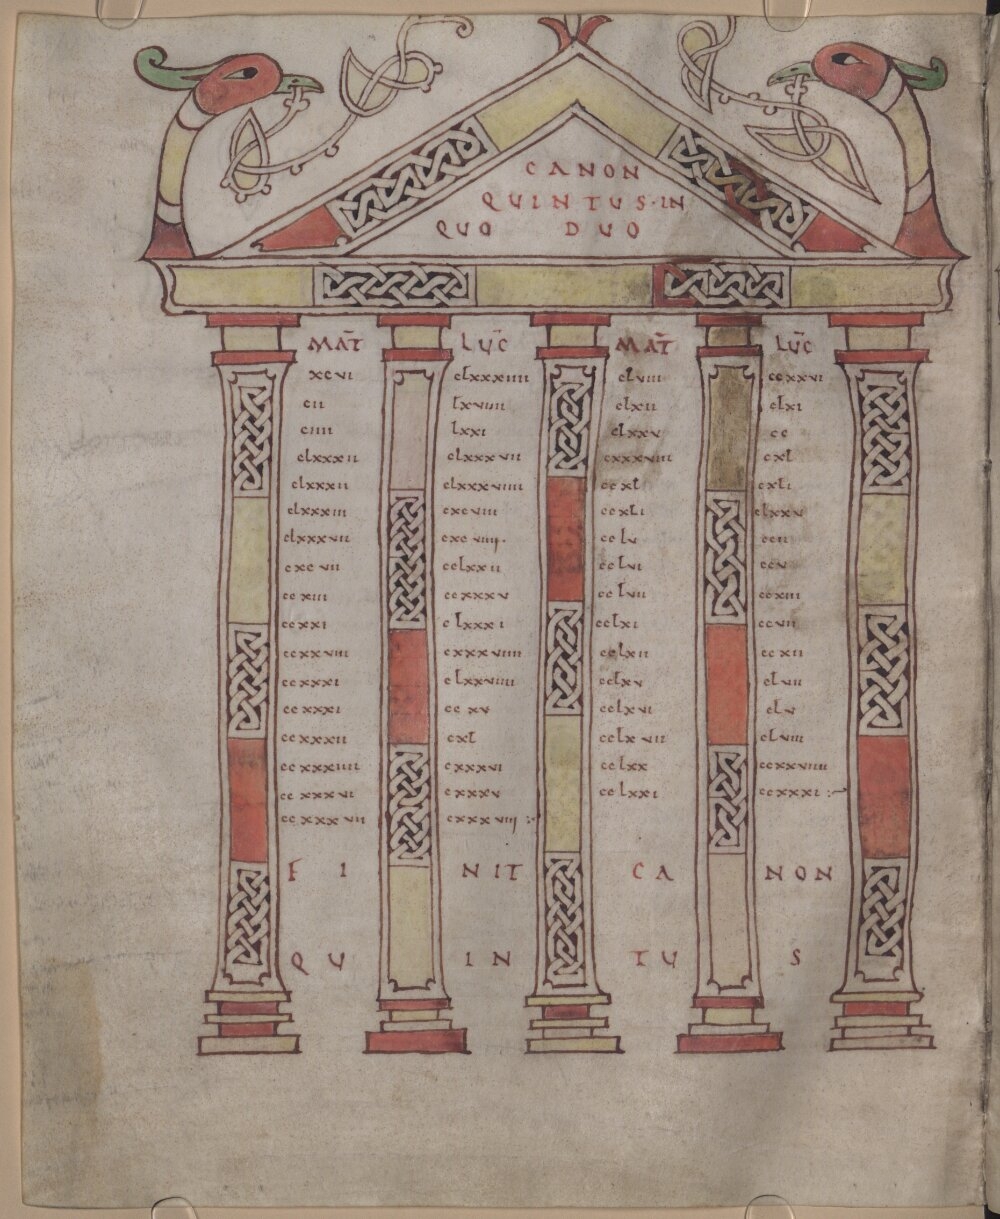 CANON
QUINTUS·IN
QUO DUO
MAT̄ LUC̄ MAT̄ LUC̄
xcvi clxxxiiii clviii ccxxvi
cii lxviiii clxii clxi
ciiii lxxi clxxv cc
clxxxii clxxxvii cxxxviiii cxl
clxxxii clxxxviiii ccxl cxli
clxxxiii cxcviii ccxli clxxv
clxxxvii cxcviiij. cclv ccii
cxcvii cclxxii cclvi ccv
ccxiii ccxxxv cclvii ccxiii
ccxxi clxxxi cclxi ccvii
ccxxviii cxxxviiii cclxii ccxii
ccxxxi clxxviiii cclxv clvii
ccxxxi ccxv cclxvi clv
ccxxxii cxl cclxvii clviii
ccxxxiiii cxxxvi cclxx ccxxviiii
ccxxxvi cxxxv cclxxi ccxxxi :~
ccxxxvii cxxxviij :~
FI NIT CA NON
QU IN TU S